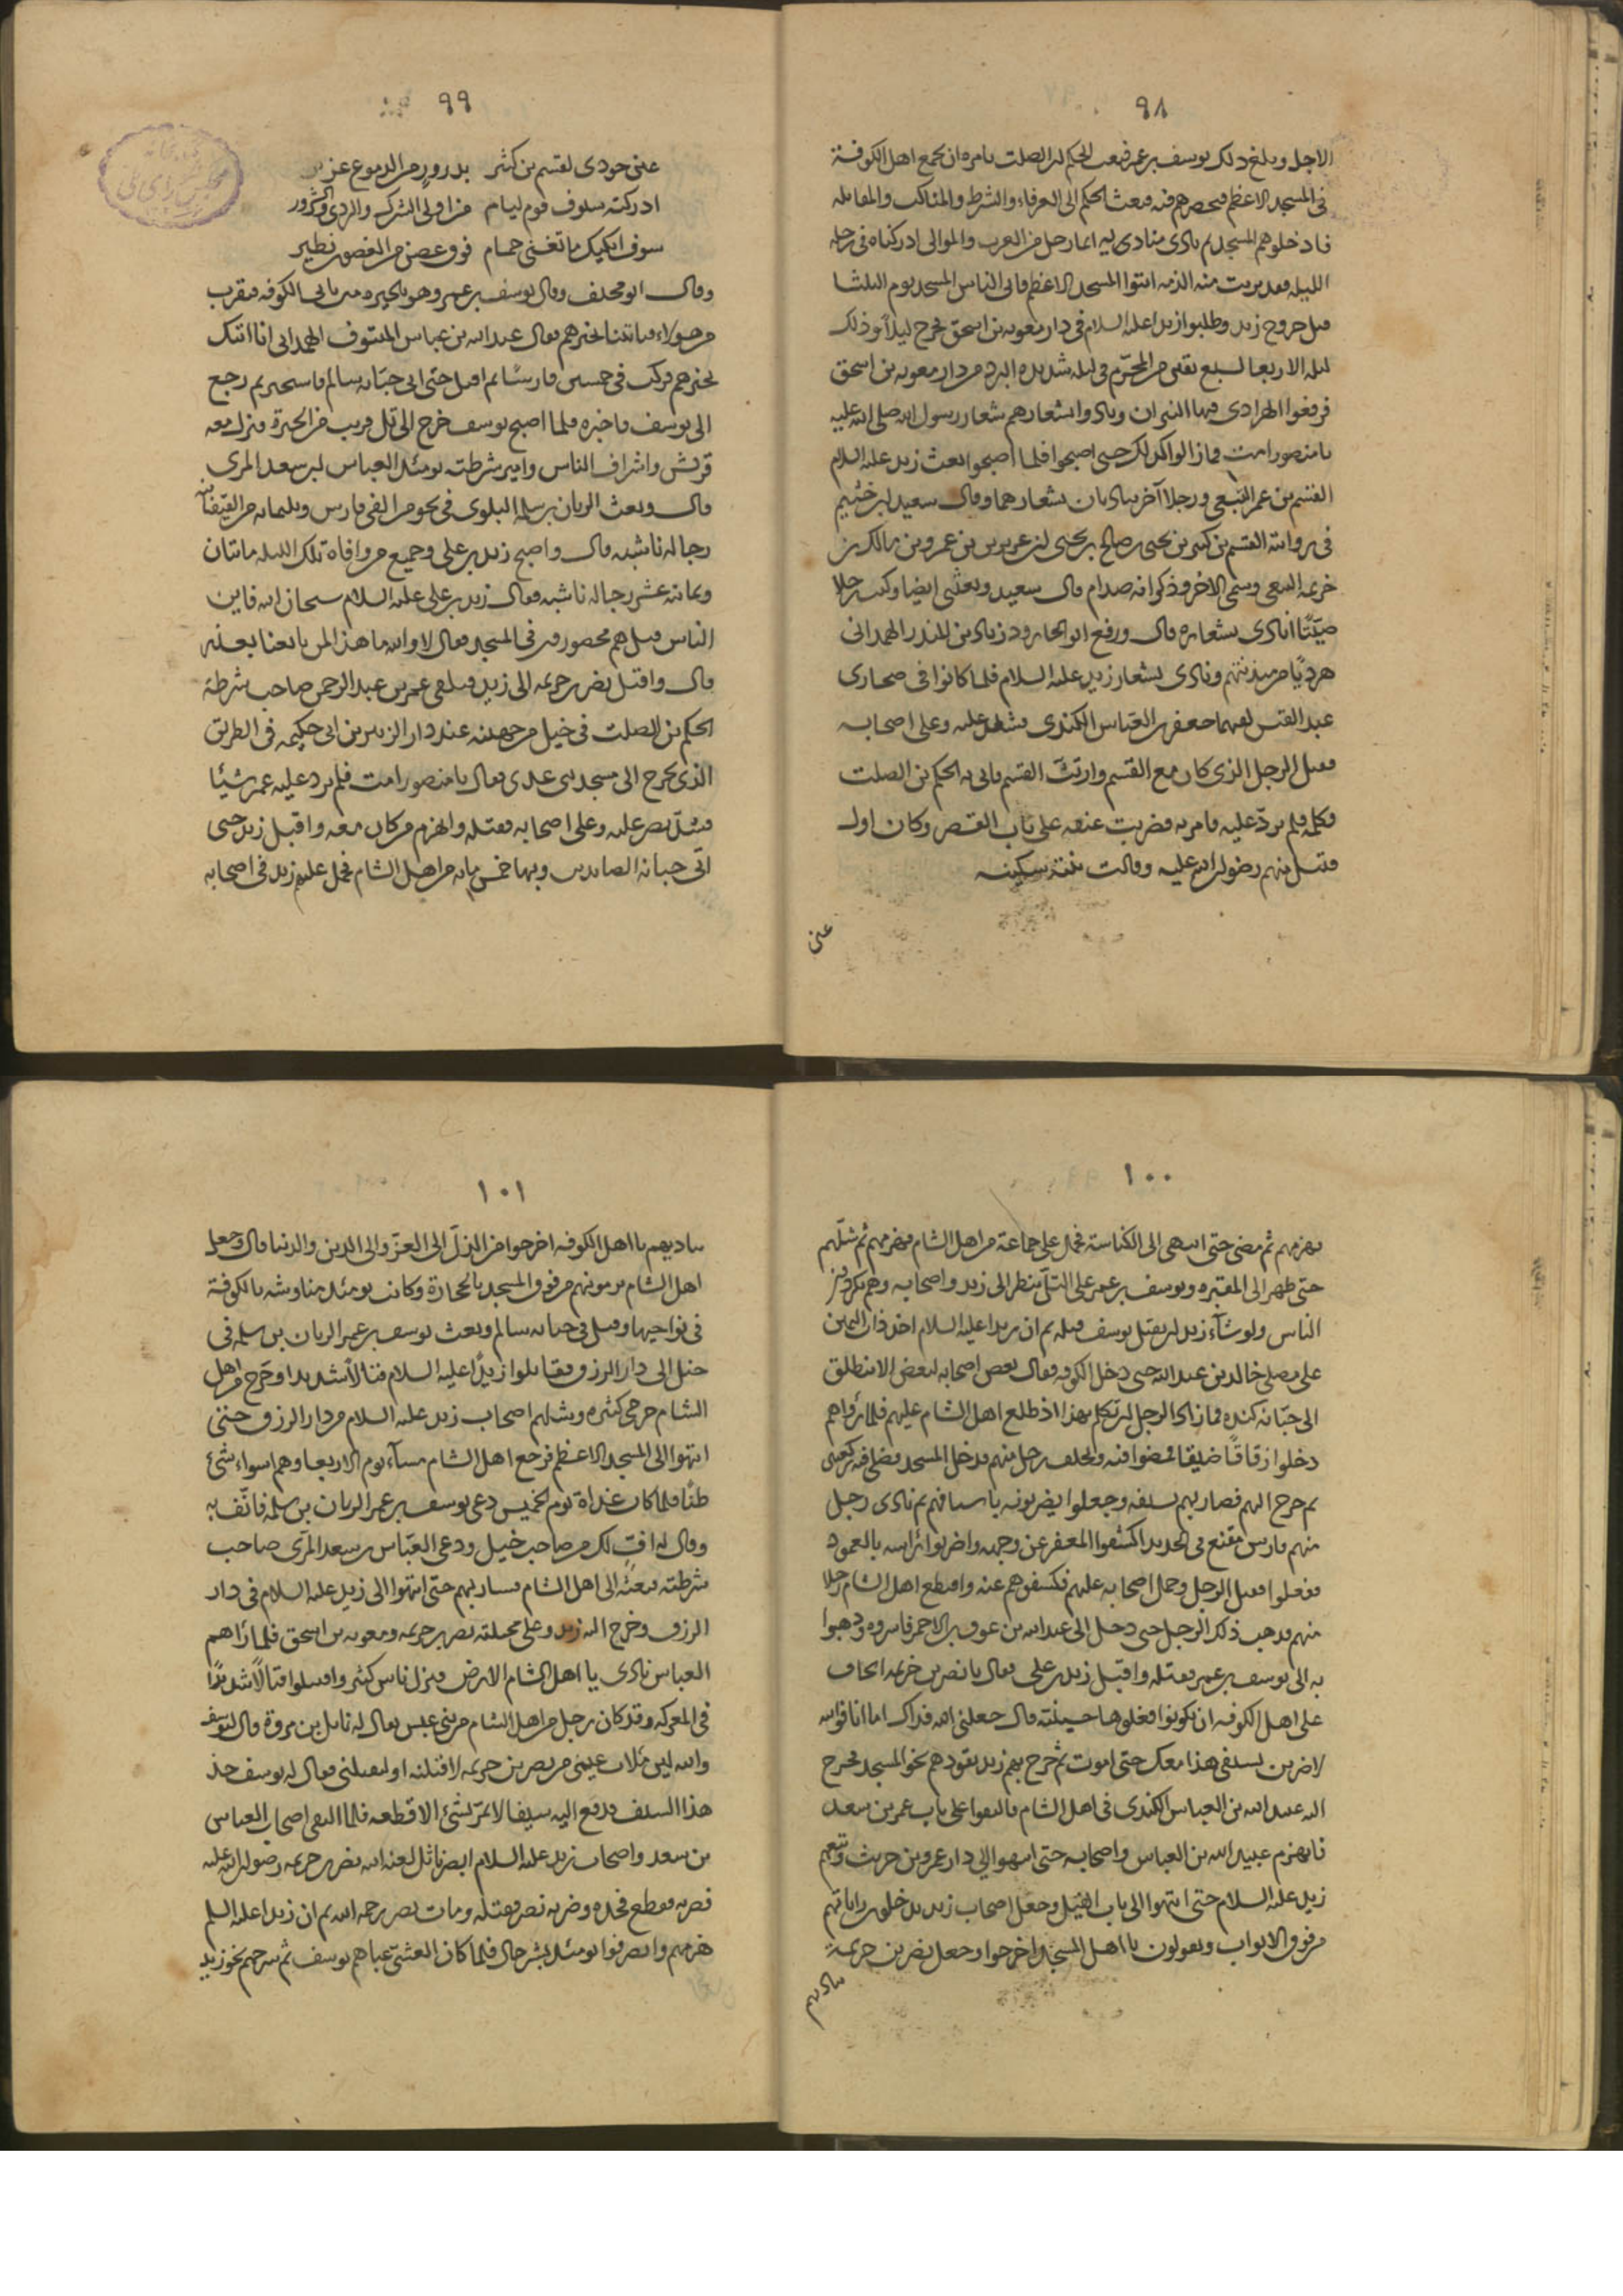 ٩٨
الاجل وبلغ ذلك يوسف بن عمر فبعث الحكم بن الصلت يامره ان يجمع اهل الكوفة
في المسجد الاعظم فيحصرهم فيه فبعث الحكم الى العرفاء والشرط والمناكب والمقاتله
فادخلوهم المسجد ثم نادى مناديه ايما رجل من العرب والموالى ادركناه في رحله
الليله فقد برئت منه الذمه ائتوا المسجد الاعظم فاتى الناس المسجد يوم الثلثا
قبل خروج زيد وطلبوا زيدا عليه السلام في دار معويه بن اسحق فخرج ليلا وذلك
ليله الاربعا لسبع بقين من المحرّم في ليله شديده البرد من دار معويه بن اسحق
فرفعوا الهرادى فيها النيران ونادوا بشعارهم شعار رسول الله صلى الله عليه
يا منصور امت فما زالوا كذلك حتى اصبحوا فلما اصبحوا بعث زيد عليه السلام
القسم بن عمر التبعي ورجلا آخر يناديان بشعارهما وقال سعيد بن خثيم
في روايته القسم بن كثير بن يحيى بن صالح بن يحيى بن عزيز بن عمرو بن مالك بن
خزيمه التبعى وسمى الاخر وذكر انه صدام قال سعيد وبعثنى ايضا وكنت رجلا
صيّتًا انادى بشعاره قال ورفع ابو الجارود زياد بن المنذر الهمدانى
هرديًا من ميذنتهم ونادى بشعار زيد عليه السلام فلما كانوا في صحارى
عبد القيس لقيهما جعفر بن العباس الكندى فشد عليه وعلى اصحابه
فقتل الرجل الذى كان مع القسم وارتثّ القسم فاتى به الحكم بن الصلت
فكلمه فلم يردّ عليه فامر به فضربت عنقه على باب القصر وكان اول
قتيل منهم رضوان الله عليه وقالت بنته سكينه
عين
٩٩
عين جودى لقسيم بن كثير بدرور من الدموع غزير
ادركته سيوف قوم ليام من اولى الشرك والردى والشرور
سوف ابكيك ما تغنى حمام فوق غصن من الغصون نظير
وقال ابو مخنف وقال يوسف بن عمر وهو بالحيره من ياتى الكوفه فيقرب
من هولاء فياتينا بخبرهم فقال عبد الله بن عباس المنتوف الهمدانى انا اتيك
بخبرهم فركب في خمسين فارسًا ثم اقبل حتى اتى جبّانه سالم فاستخبر ثم رجع
الى يوسف فاخبره فلما اصبح يوسف خرج الى تل قريب من الحيرة فنزل معه
قريش واشراف الناس وامير شرطته يومئذ العباس بن سعد المرى
قال وبعث الريان بن سلمه البلوى في نحو من الفى فارس وثلثمايه من القيقانيه
رجاله ناشبه قال واصبح زيد بن على وجميع من وافاه تلك الليله مائتان
وثمانيه عشر رجاله ناشبه فقال زيد بن على عليه السلام سبحان الله فاين
الناس قيل هم محصورون في المسجد فقال لا والله ما هذا لمن بايعنا بعذر
قال واقبل نصر بن خزيمه الى زيد فتلقى عمر بن عبد الرحمن صاحب شرطة
الحكم بن الصلت في خيل من جهينه عند دار الزبير بن ابى حكيمه في الطريق
الذى يخرج الى مسجد بنى عدى فقال يا منصور امت فلم يرد عليه عمر شيئا
فشدّ نصر عليه وعلى اصحابه فقتله وانهزم من كان معه واقبل زيد حتى
اتى جبانه الصايدين وبها خمس مايه من اهل الشام فحمل عليهم زيد في اصحابه
١٠٠
فهزمهم ثم مضى حتى انتهى الى الكناسة فحمل على جماعة من اهل الشام فهزمهم ثم شلّهم
حتى ظهر الى المقبره ويوسف بن عمر على التلّ ينظر الى زيد واصحابه وهم يكردون
الناس ولو شآء زيد ان يقتل يوسف قتله ثم ان زيدا عليه السلام اخذ ذات اليمين
على مصلى خالد بن عبد الله حتى دخل الكوفه فقال بعض اصحابه لبعض الا ننطلق
الى جبّانة كنده فما زاد الرجل ان تكلم بهذا اذ طلع اهل الشام عليهم فلما راواهم
دخلوا زقاقًا ضيقا فمضوا فيه وتخلف رجل منهم فدخل المسجد فصلى فيه ركعتين
ثم خرج اليهم فضاربهم بسيفه وجعلوا يضربونه باسيافهم ثم نادى رجل
منهم فارس مقنع في الحديد اكشفوا المغفر عن وجهه واضربوا راسه بالعمود
ففعلوا فقتل الرجل وحمل اصحابه عليهم فكشفوهم عنه واقتطع اهل الشام رجلا
منهم فذهب ذلك الرجل حتى دخل الى عبد الله بن عوف بن الاحمر فاسروه وذهبوا
به الى يوسف بن عمر فقتله واقبل زيد بن على فقال يا نصر بن خزيمه اتخاف
على اهل الكوفه ان يكونوا فعلوها حسينيّة قال جعلنى الله فداك اما انا فوالله
لاضربن بسيفى هذا معك حتى اموت ثم خرج بهم زيد يقودهم نحو المسجد فخرج
اليه عبيد الله بن العباس الكندى في اهل الشام فالتقوا على باب عمر بن سعد
فانهزم عبيد الله بن العباس واصحابه حتى انتهوا الى دار عمرو بن حريث وتبعهم
زيد عليه السلام حتى انتهوا الى باب الفيل وجعل اصحاب زيد يدخلون راياتهم
من فوق الابواب ويقولون يا اهل المسجد اخرجوا وجعل نصر بن خزيمة
يناديهم
١٠١
يناديهم يا اهل الكوفه اخرجوا من الذلّ الى العزّ والى الدين والدنيا قال وجعل
اهل الشام يرمونهم من فوق المسجد بالحجارة وكانت يومئذ مناوشه بالكوفة
في نواحيها وقيل في جبانه سالم وبعث يوسف بن عمر الريان بن سلمه في
خيل الى دار الرزق فقاتلوا زيدًا عليه السلام قتالًا شديدا وخرج من اهل
الشام جرحى كثيره وشلهم اصحاب زيد عليه السلام من دار الرزق حتى
انتهوا الى المسجد الاعظم فرجع اهل الشام مسآء يوم الاربعا وهم اسواء شئ
ظنًا فلما كان غداة يوم الخميس دعى يوسف بن عمر الريان بن سلمة فانّف به
وقال له افٍ لك من صاحب خيل ودعى العبّاس بن سعد المرّى صاحب
شرطته فبعثه الى اهل الشام فسار بهم حتى انتهوا الى زيد عليه السلام في دار
الرزق وخرج اليه زيد وعلى مجنبته نصر بن خزيمه ومعويه بن اسحق فلما رآهم
العباس نادى يا اهل الشام الارض فنزل ناس كثير واقتتلوا قتالًا شديدًا
في المعركه وقد كان رجل من اهل الشام من بنى عبس يقال له نائل بن فروة قال ليوسف
والله لئن ملات عينى من نصر بن خزيمه لاقتلنه او ليقتلنى فقال له يوسف خذ
هذا السيف فدفع اليه سيفا لا يمرّ بشئ الا قطعه فلما التقى اصحاب العباس
بن سعد واصحاب زيد عليه السلام ابصر نائل لعنه الله نصر بن خزيمه رضوان الله عليه
فضربه فقطع فخذه وضربه نصر فقتله ومات نصر رحمه الله ثم ان زيدا عليه السلم
هزمهم وانصرفوا يومئذ بشر حال فلما كان العشىّ عباهم يوسف ثم سرحهم نحو زيد